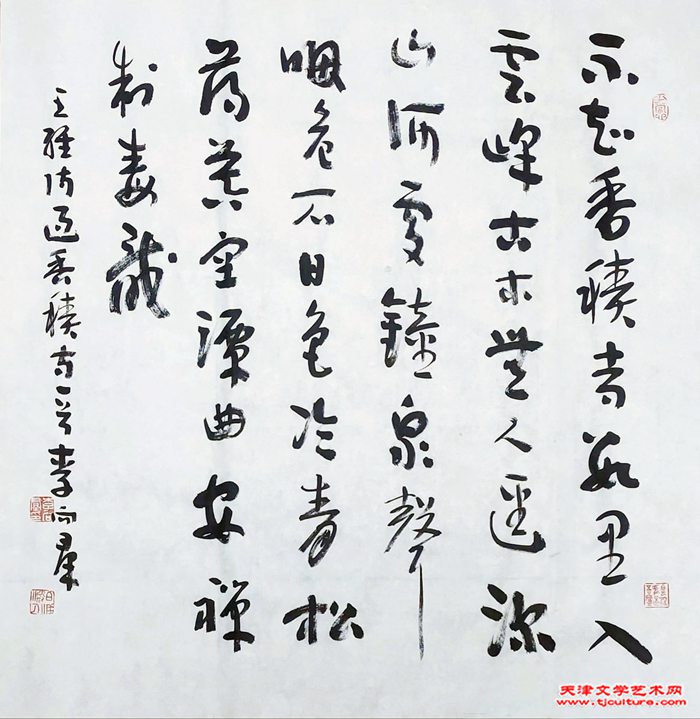 不知香積寺數里入
雲峰古木無人逕深
山何處鐘泉聲
咽危石日色冷青松
薄暮空潭曲安禪
制毒龍
王維詩過香積寺一首李向群
天津文学艺术网
www.tjculture.com